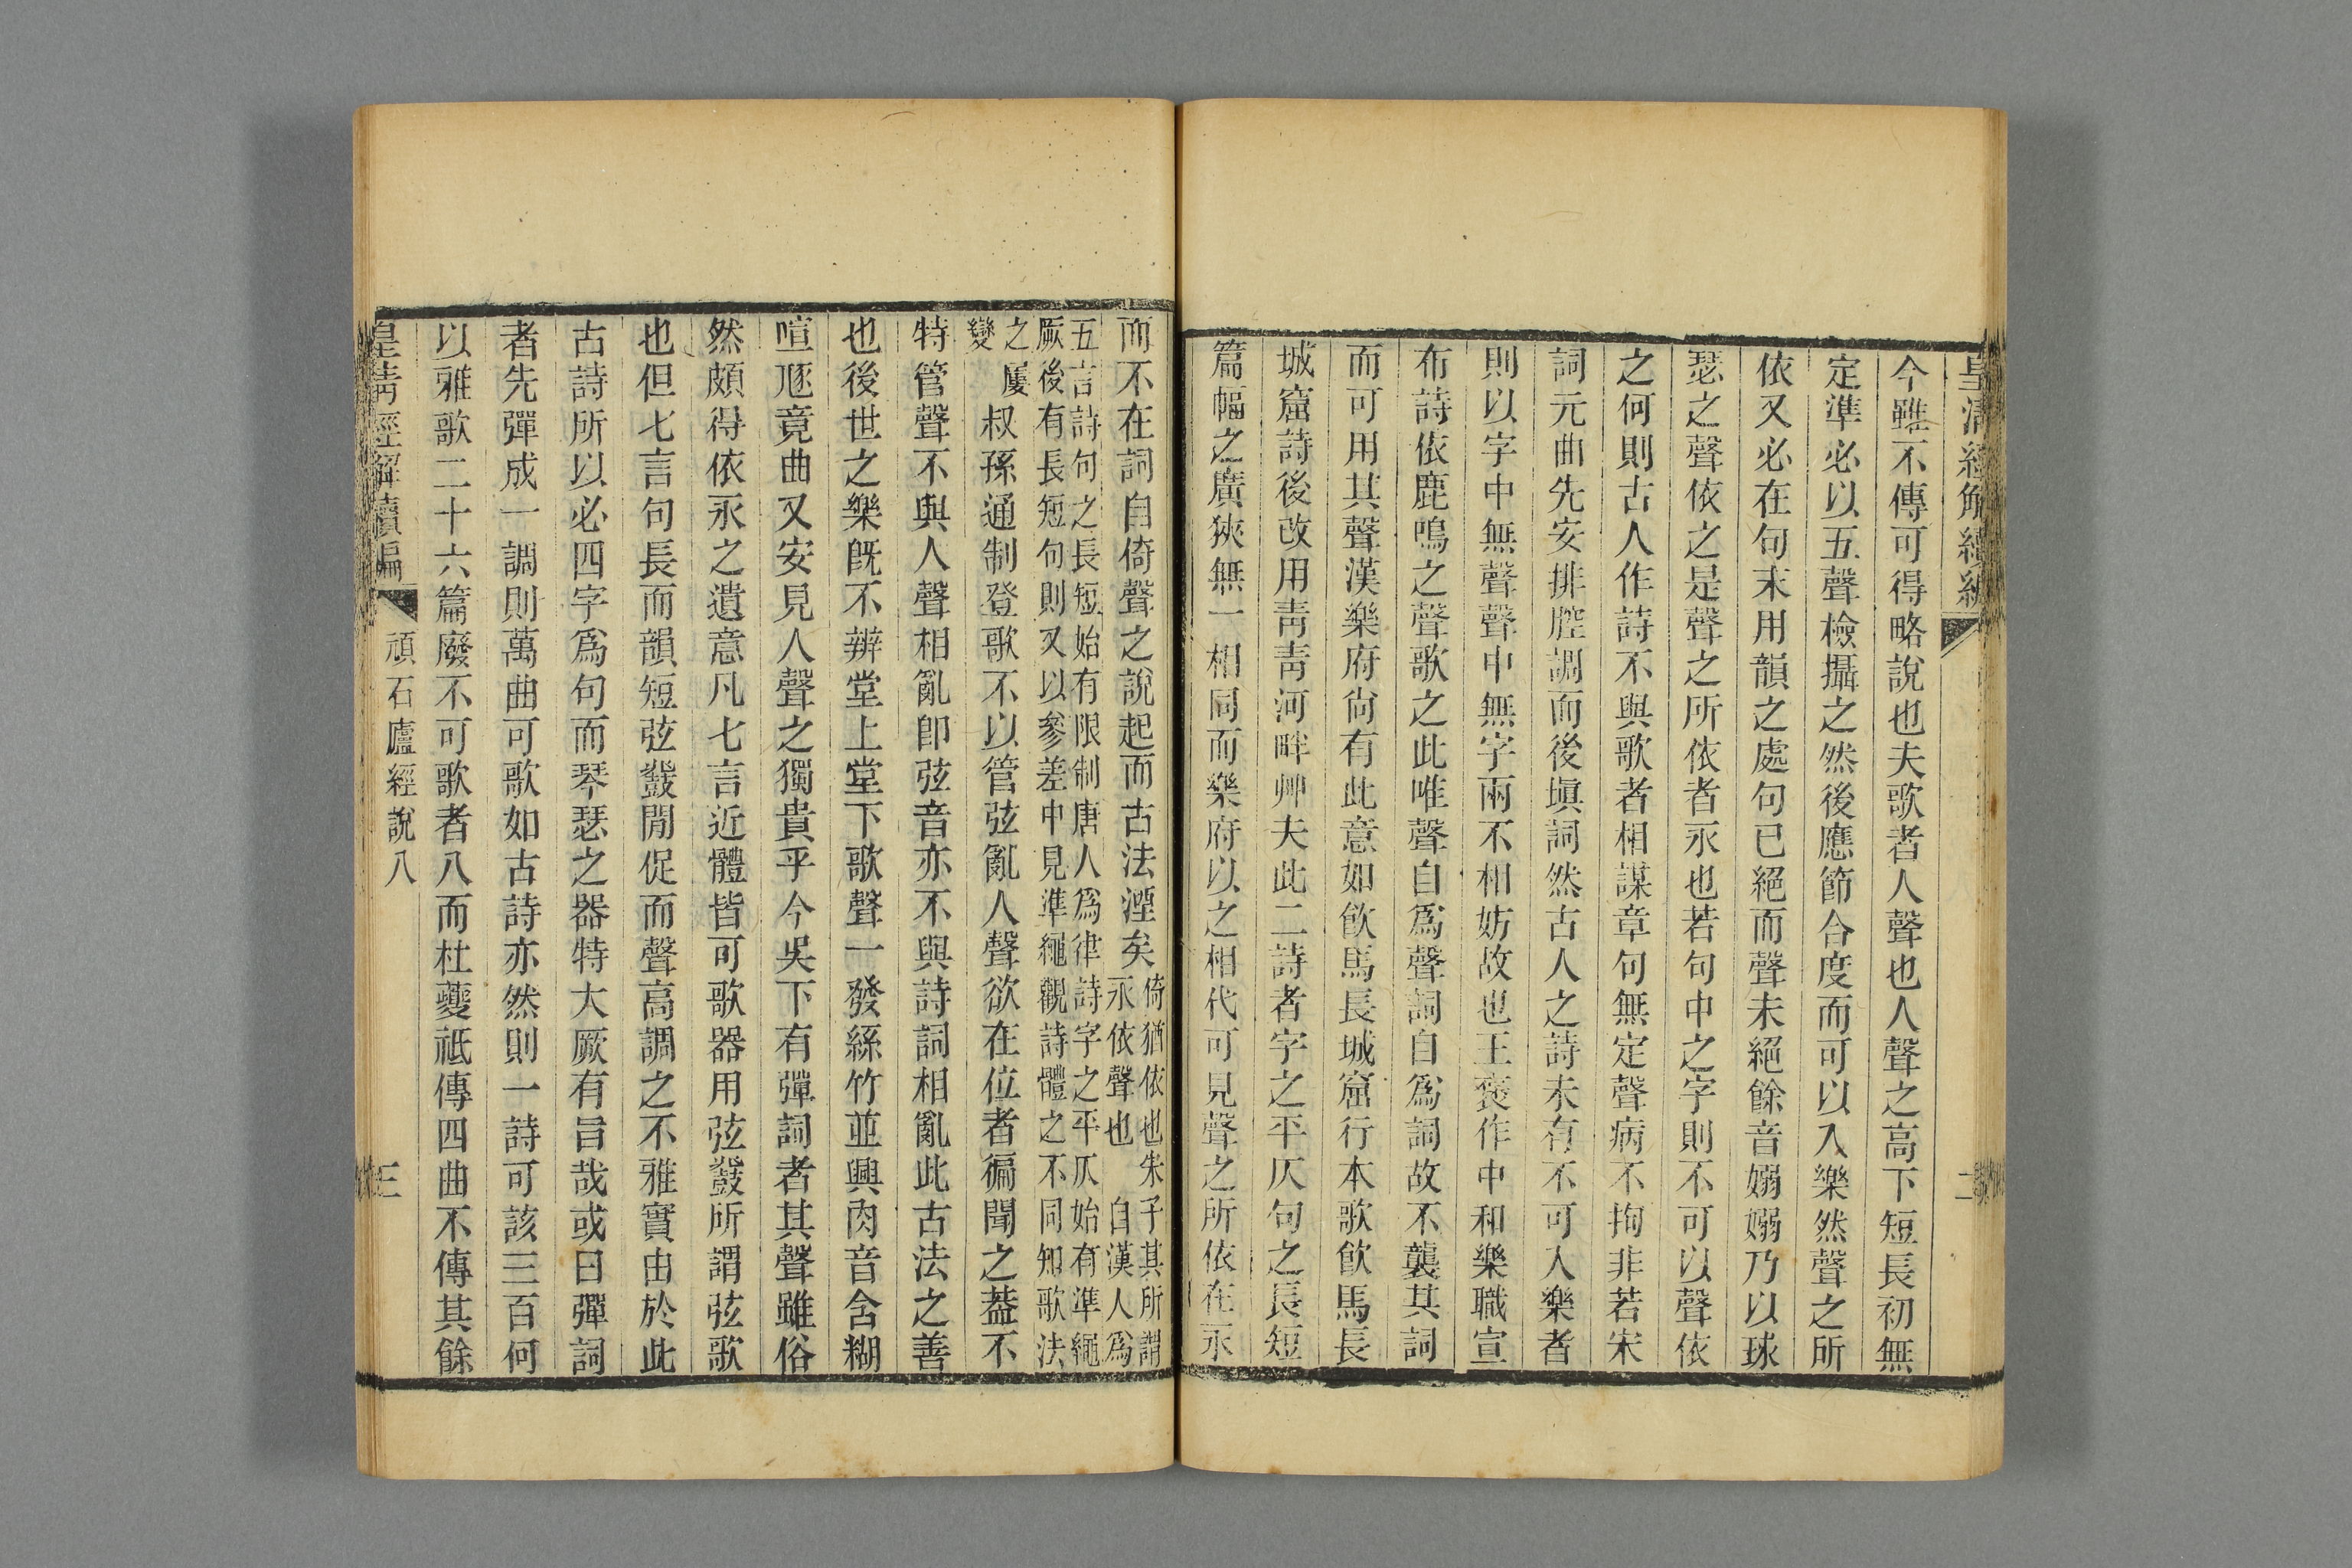 皇清經解續編
二
今雖不傳可得略說也夫歌者人聲也人聲之高下短長初無
定準必以五聲檢攝之然後應節合度而可以入樂然聲之所
依又必在句末用韻之處句已絕而聲未絕餘音嫋嫋乃以球
瑟之聲依之是聲之所依者永也若句中之字則不可以聲依
之何則古人作詩不與歌者相謀章句無定聲病不拘非若宋
詞元曲先安排腔調而後塡詞然古人之詩未有不可入樂者
則以字中無聲聲中無字兩不相妨故也王襃作中和樂職宣
布詩依鹿鳴之聲歌之此唯聲自爲聲詞自爲詞故不襲其詞
而可用其聲漢樂府尙有此意如飮馬長城窟行本歌飮馬長
城窟詩後改用靑靑河畔艸夫此二詩者字之平仄句之長短
篇幅之廣狹無一相同而樂府以之相代可見聲之所依在永
而不在詞自倚聲之說起而古法湮矣倚猶依也朱子其所謂
永依聲也自漢人爲
五言詩句之長短始有限制唐人爲律詩字之平仄始有準繩
厥後有長短句則又以參差中見準繩觀詩體之不同知歌法
之屢
變叔孫通制登歌不以管弦亂人聲欲在位者徧聞之葢不
特管聲不與人聲相亂卽弦音亦不與詩詞相亂此古法之善
也後世之樂旣不辨堂上堂下歌聲一發絲竹並興肉音含糊
喧豗竟曲又安見人聲之獨貴乎今吳下有彈詞者其聲雖俗
然頗得依永之遺意凡七言近體皆可歌器用弦鼗所謂弦歌
也但七言句長而韻短弦鼗閒促而聲高調之不雅實由於此
古詩所以必四字爲句而琴瑟之器特大厥有旨哉或曰彈詞
者先彈成一調則萬曲可歌如古詩亦然則一詩可該三百何
以雅歌二十六篇廢不可歌者八而杜夔祗傳四曲不傳其餘
皇淸經解續編
頑石廬經說八
三